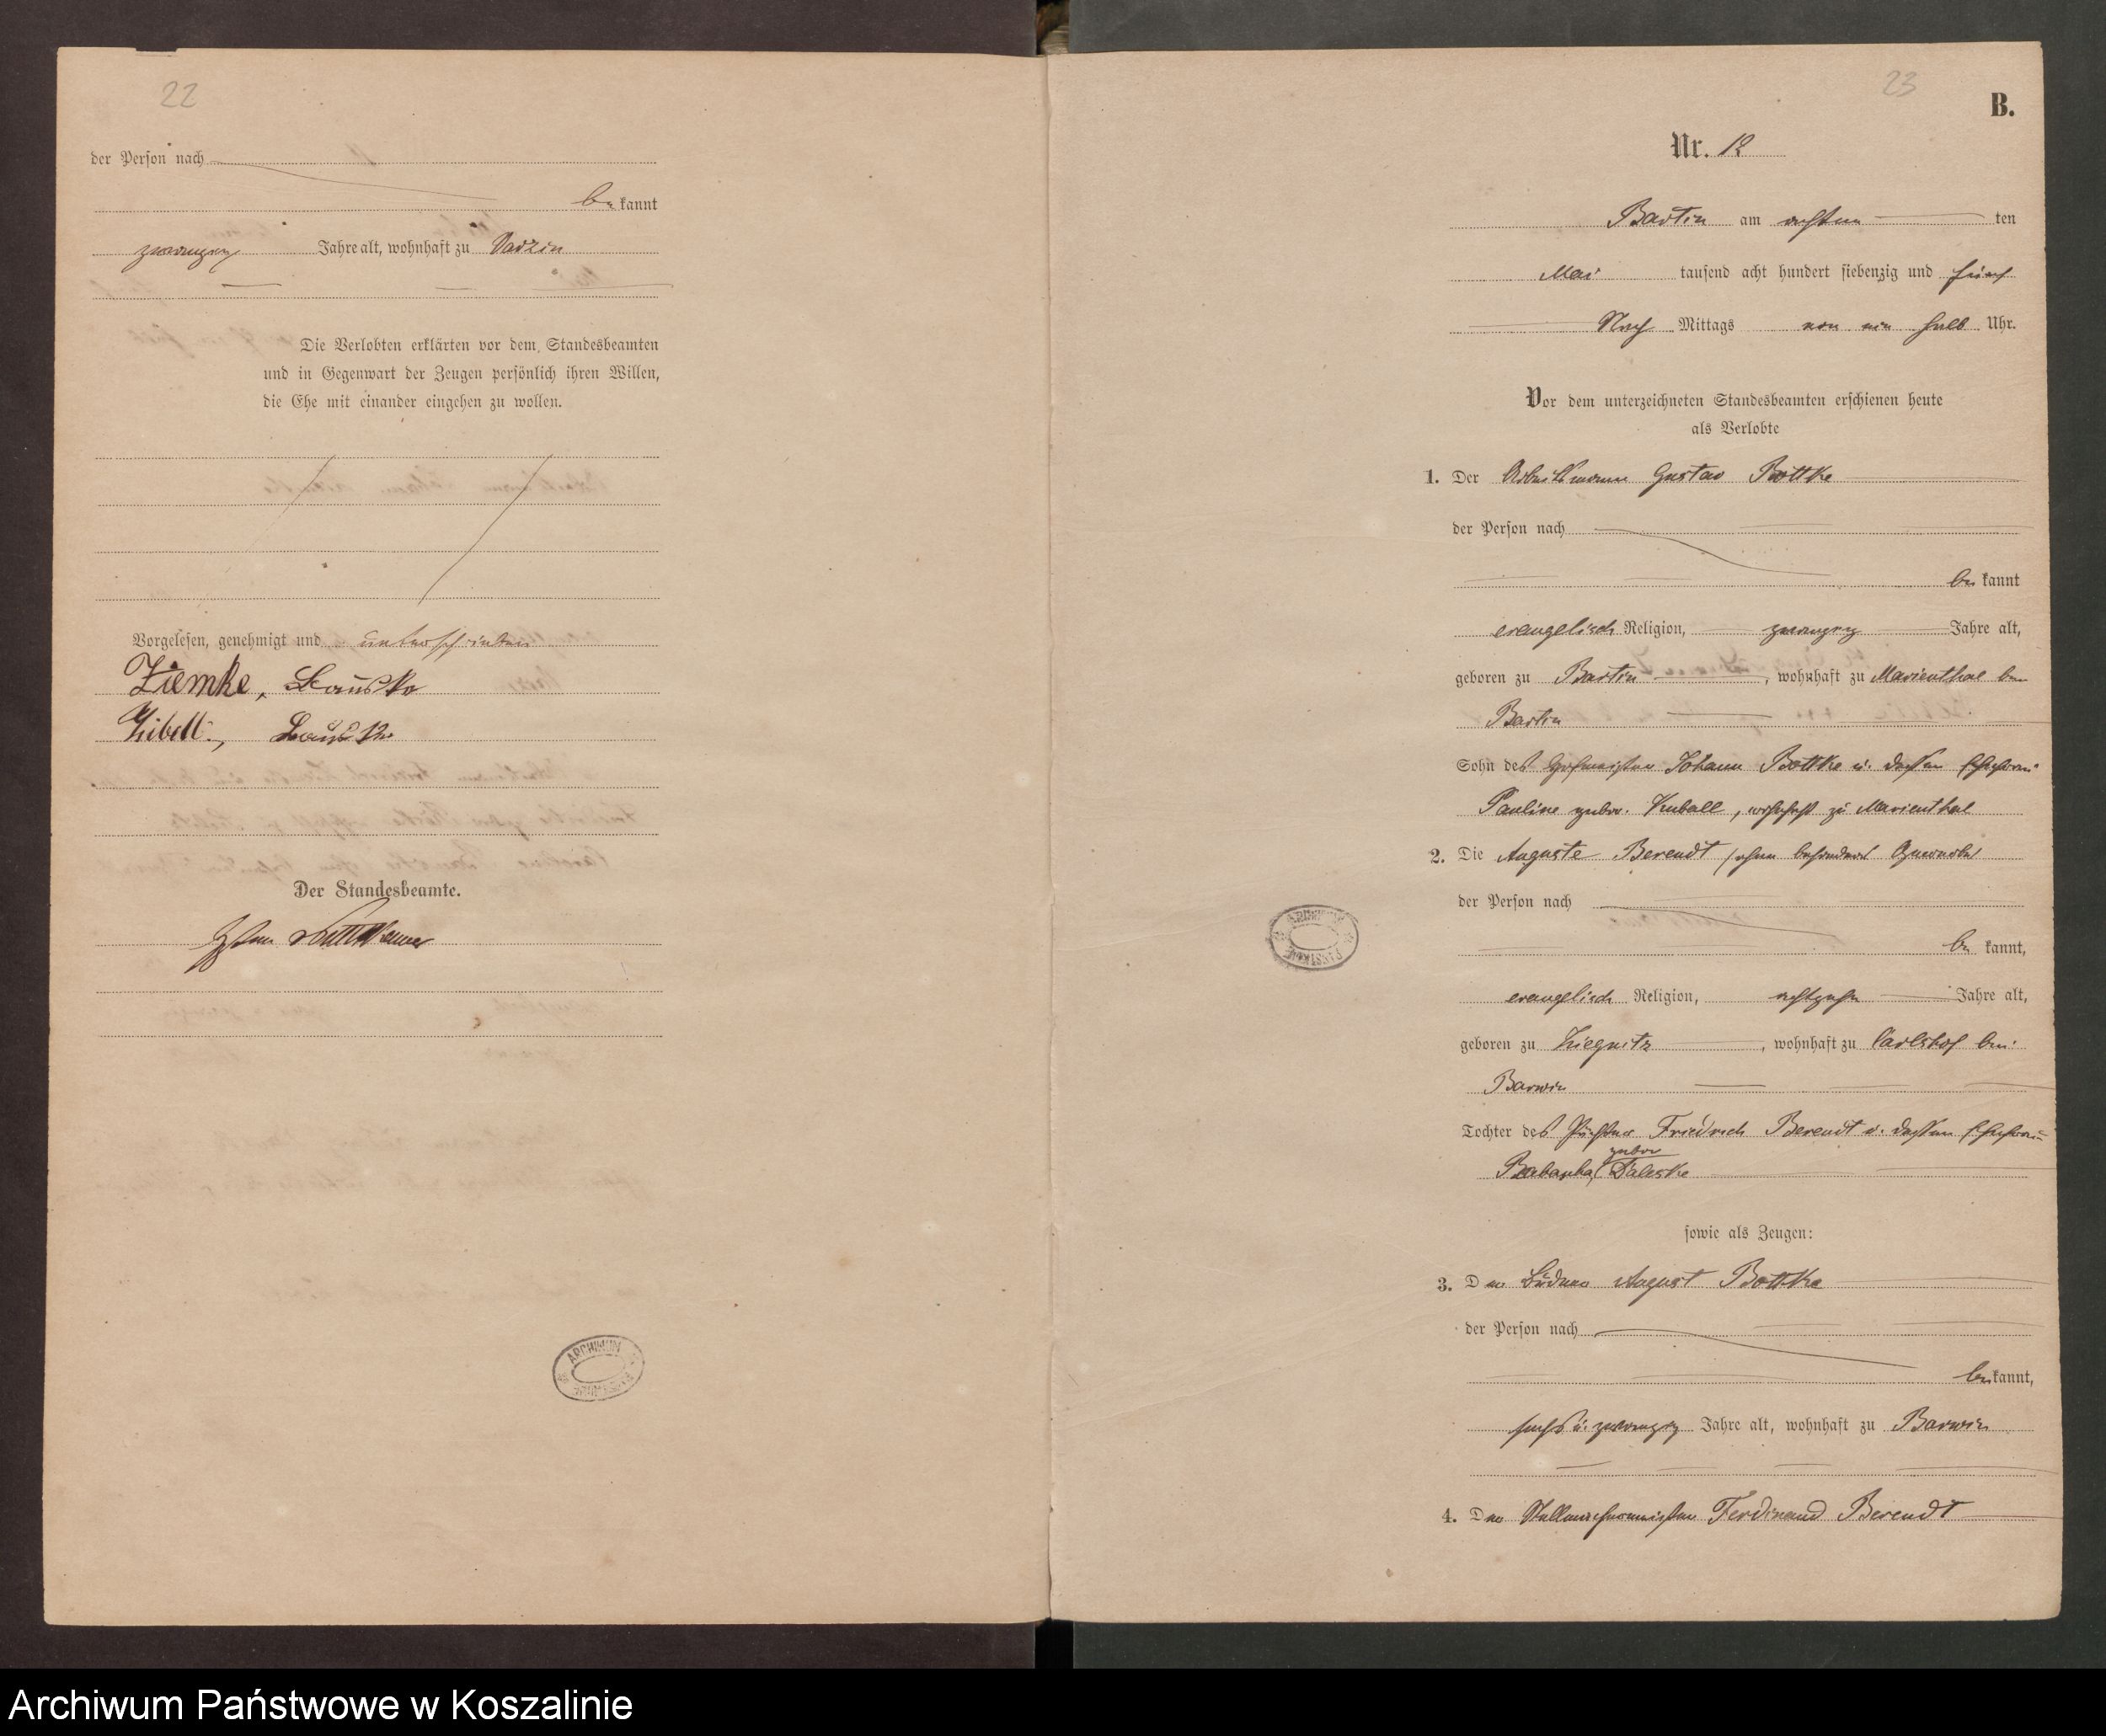 22
der Person nach
bekannt
zwanzig Jahre alt, wohnhaft zu Varzin
Die Verlobten erklärten vor dem Standesbeamten
und in Gegenwart der Zeugen persönlich ihren Willen,
die Ehe mit einander eingehen zu wollen.
Vorgelesen, genehmigt und unterschrieben
Ziemke,
Der Standesbeamte.
ARCHIWUM
23
B.
Nr. 12
Bartin am achten ten
Mai tausend acht hundert siebenzig und fünf
Nach Mittags um ein halb Uhr.
Vor dem unterzeichneten Standesbeamten erschienen heute
als Verlobte
1. Der Arbeitsmann Gustav Bottke
der Person nach
bekannt
evangelisch Religion, zwanzig Jahre alt,
geboren zu Bartin, wohnhaft zu Marienthal bei
Bartin
Sohn des Hofmeister Johann Bottke u. dessen Ehefrau
Pauline gebor. Kuball, wohnhaft zu Marienthal
2. Die Auguste Berendt, ohne besonderes Gewerbe
der Person nach
bekannt,
evangelisch Religion, achtzehn Jahre alt,
geboren zu Liegnitz, wohnhaft zu Carlshof bei
Barwin
Tochter des Friedrich Berendt u. dessen Ehefrau
gebor
Daleske
sowie als Zeugen:
3. Der Büdner August Bottke
der Person nach
bekannt,
sechs u. zwanzig Jahre alt, wohnhaft zu Barwin
4. Der Stellmachermeister Ferdinand Berendt
ARCHIWUM
Archiwum Państwowe w Koszalinie